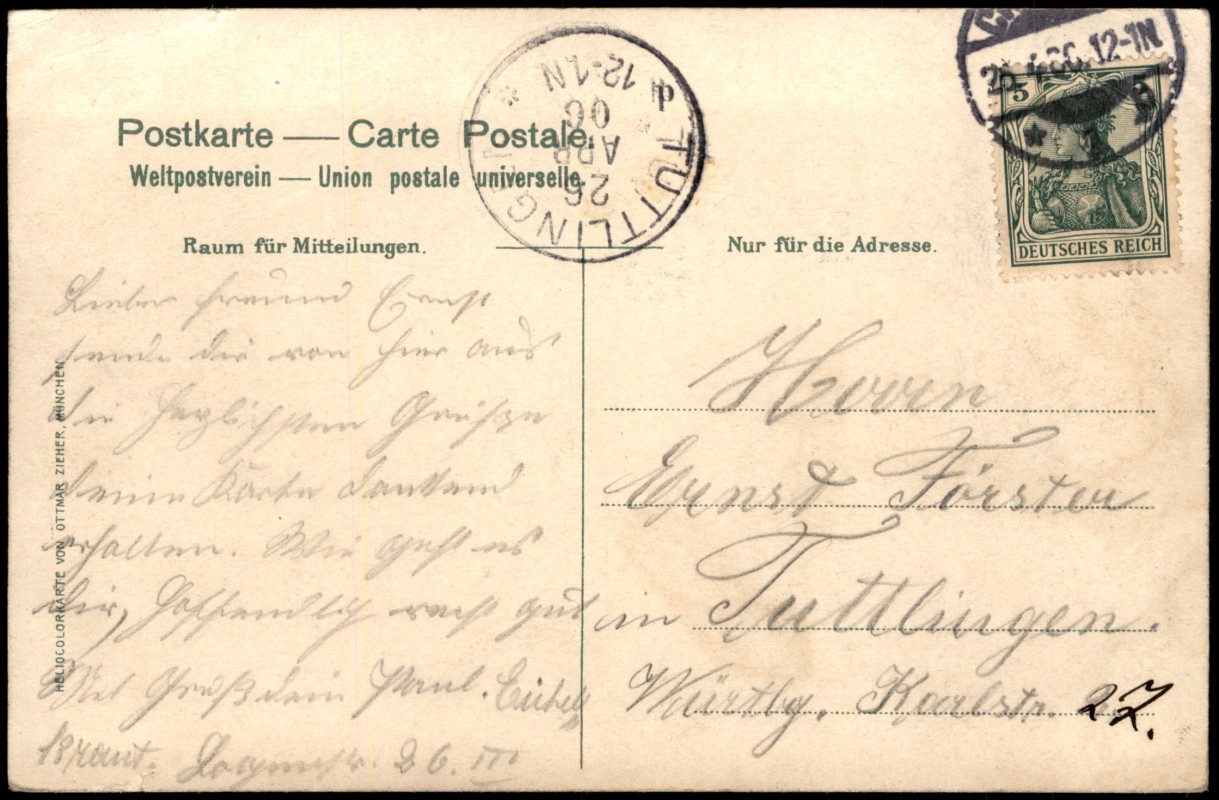 Postkarte — Carte Postale.
Weltpostverein — Union postale universelle.
Raum für Mitteilungen.
Nur für die Adresse.
TUTTLINGEN
26
APR
06
12-1.N
12-1N
5
5
DEUTSCHES REICH
Lieber Freund Ernst
sende dir von hier aus
die herzlichsten Grüße
deine Karte dankend
erhalten. Wie geht es
dir, hoffendlich recht gut
Mit Gruß dein Paul.
26. III
Herrn
Ernst Förster
in Tuttlingen.
Württbg. Karlstr. 27.
HELIOCOLORKARTE VON OTTMAR ZIEHER, MÜNCHEN